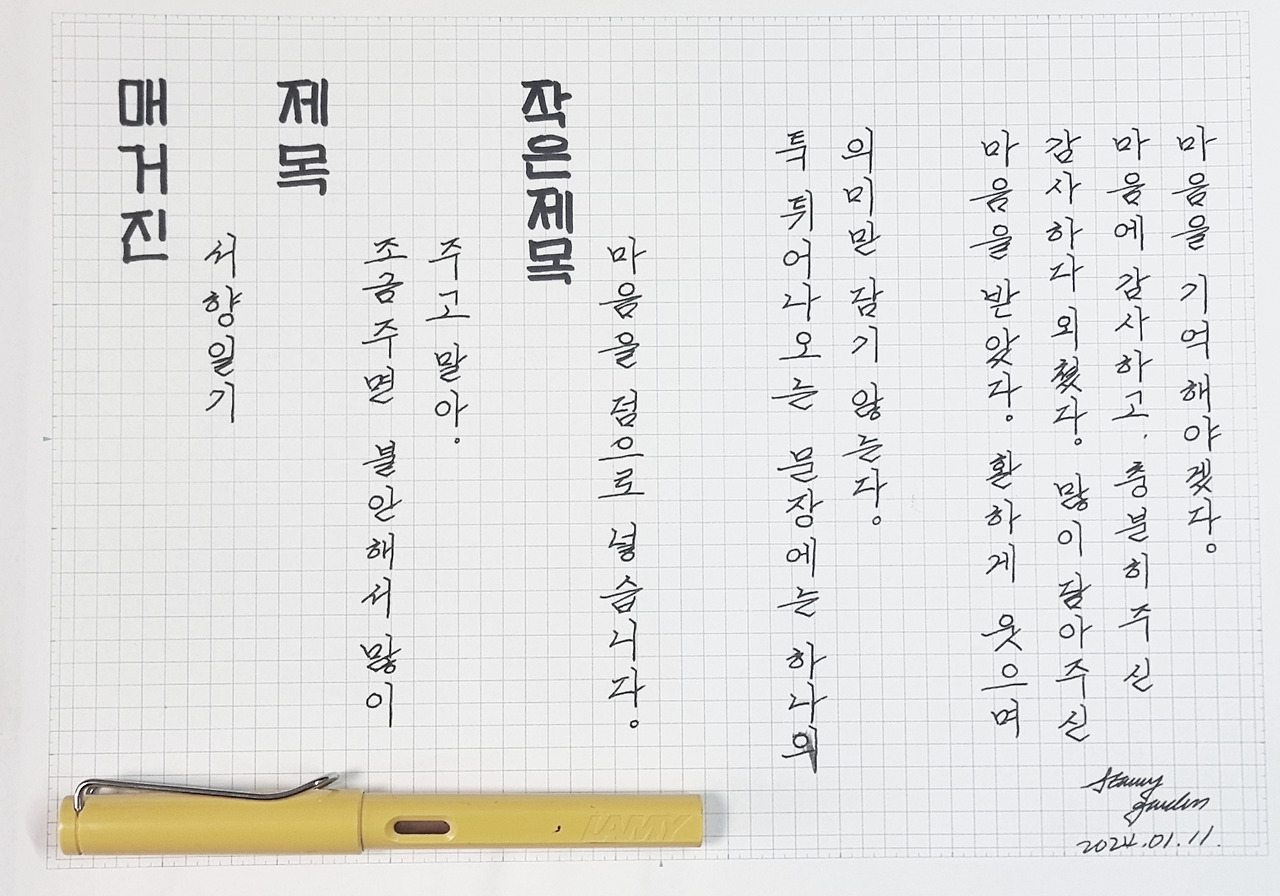 매거진
서향일기
제목
조금 주면 불안해서 많이
주고 말아.
작은제목
마음을 덤으로 넣습니다.
툭 튀어나오는 문장에는 하나의
의미만 담기 않는다.
마음을 받았다. 환하게 웃으며
감사하다 외쳤다. 많이 담아주신
마음에 감사하고, 충분히 주신
마음을 기억해야겠다.
2024.01.11.
LAMY